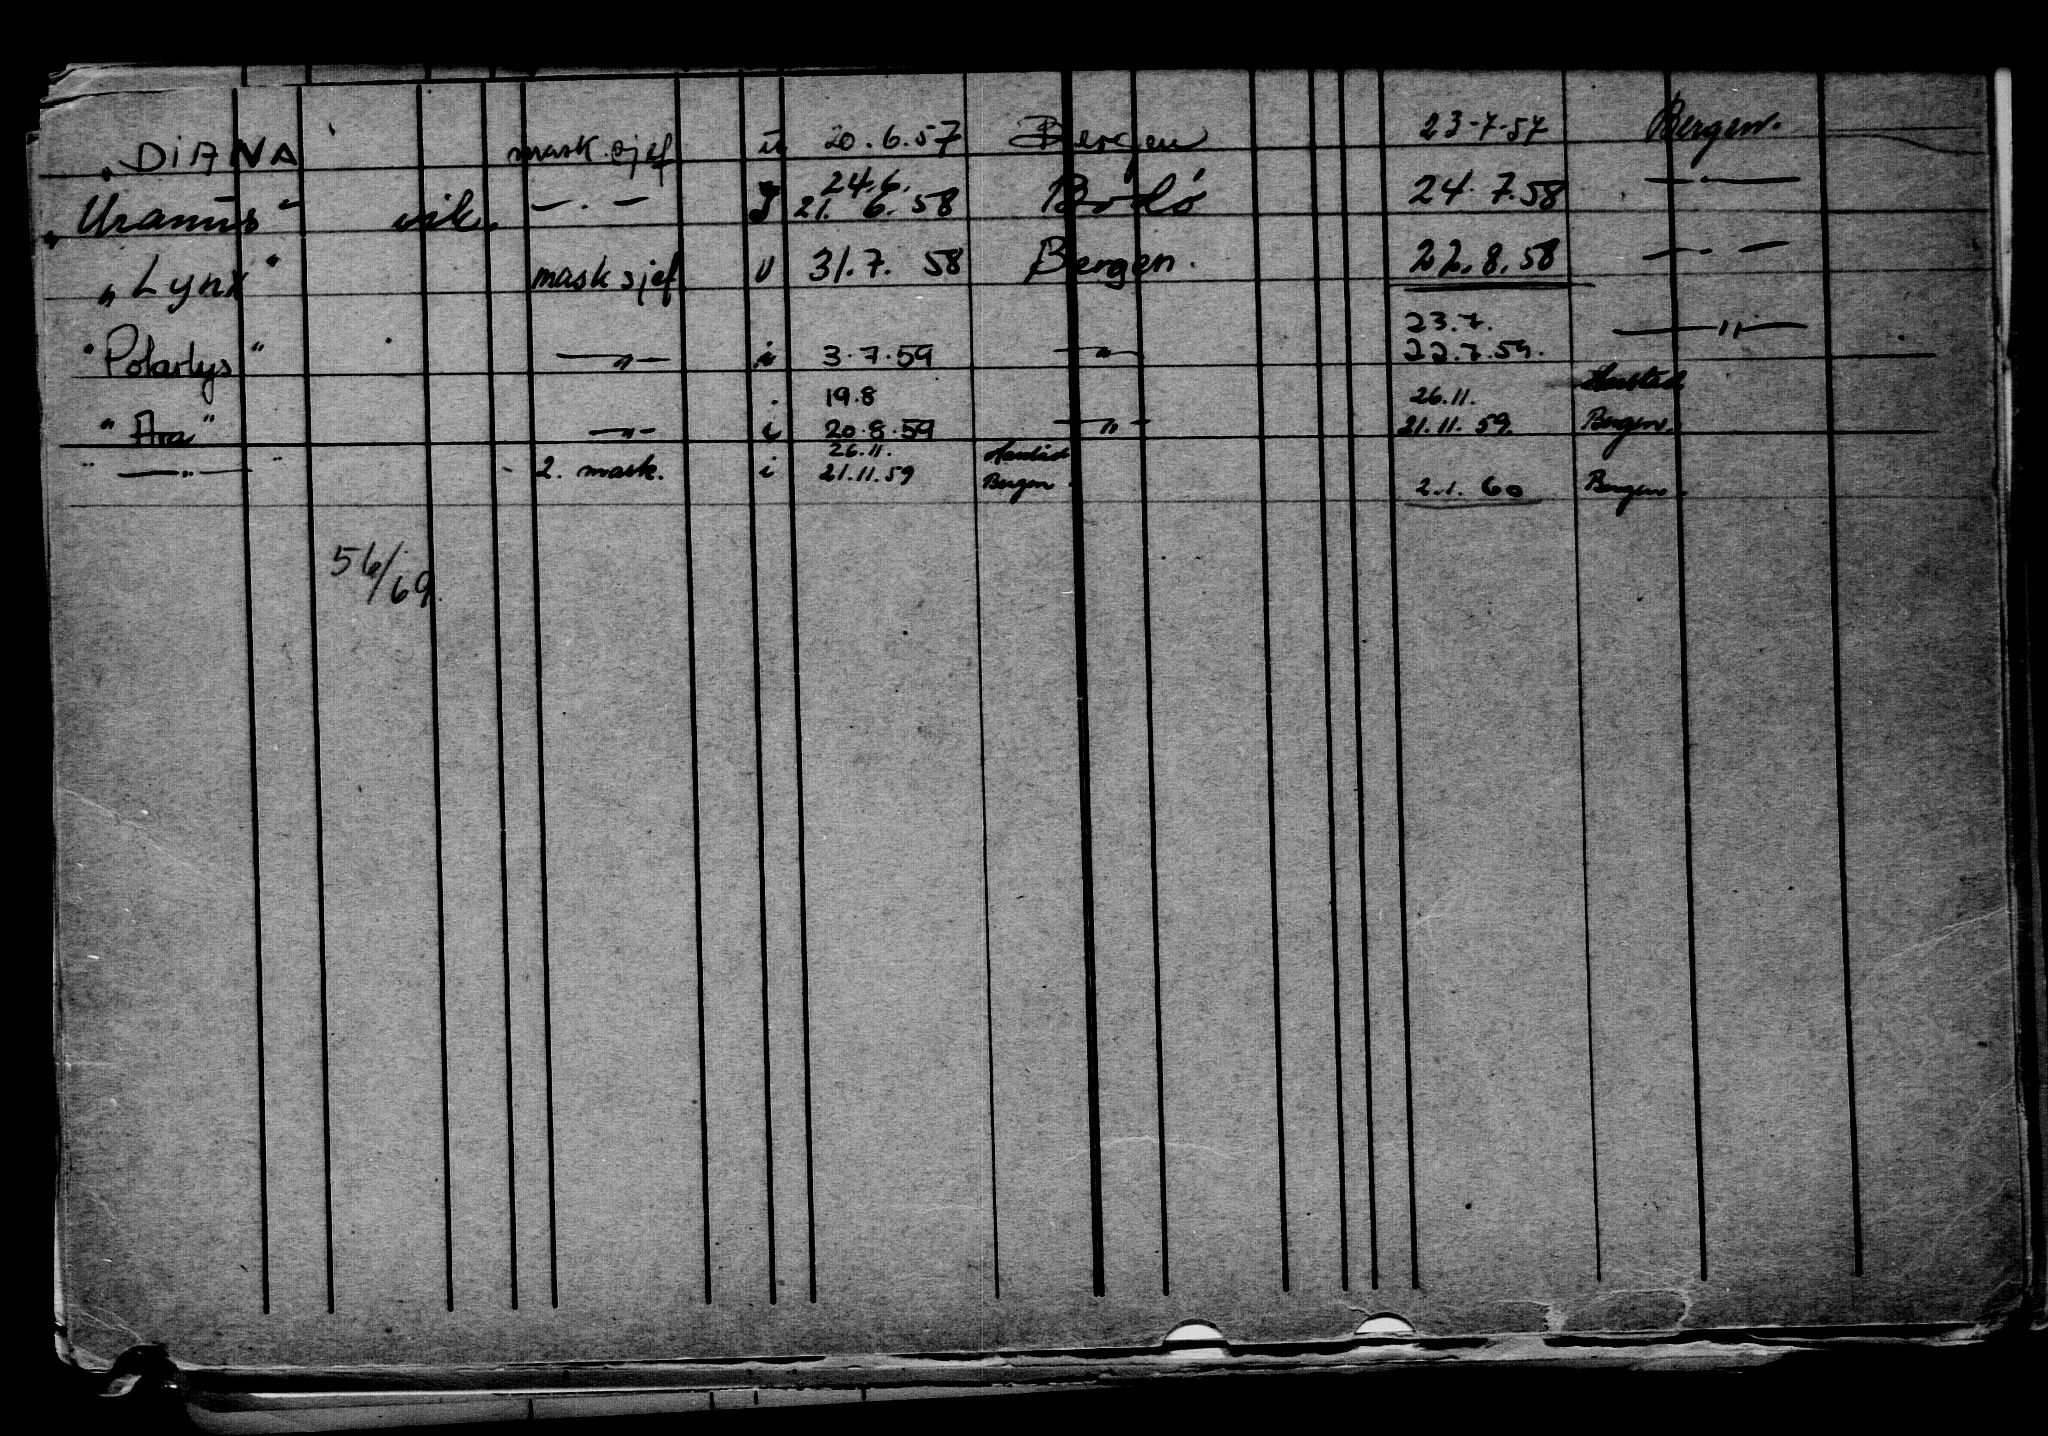 „DIANA mask.sjef u 20.6.57 Bergen 23-7-57 Bergen.
24.6.
„Uranus" vik. — . — J 21. 6. 58 Bodó 24.7.58 — . —
„Lynx" mask sjef u 31.7. 58 Bergen. 22.8.58 — . —
23.7.
"Polarlys" —„— i 3.7.59 —„— 22.7.59. —„—
19.8 26.11. Harstad
"Ara" —„— i 20.8.59 —„— 21.11.59. Bergen.
26.11. Harstad
" —„— " 2. mask. i 21.11.59 Bergen. 2.1.60 Bergen.
56/69.